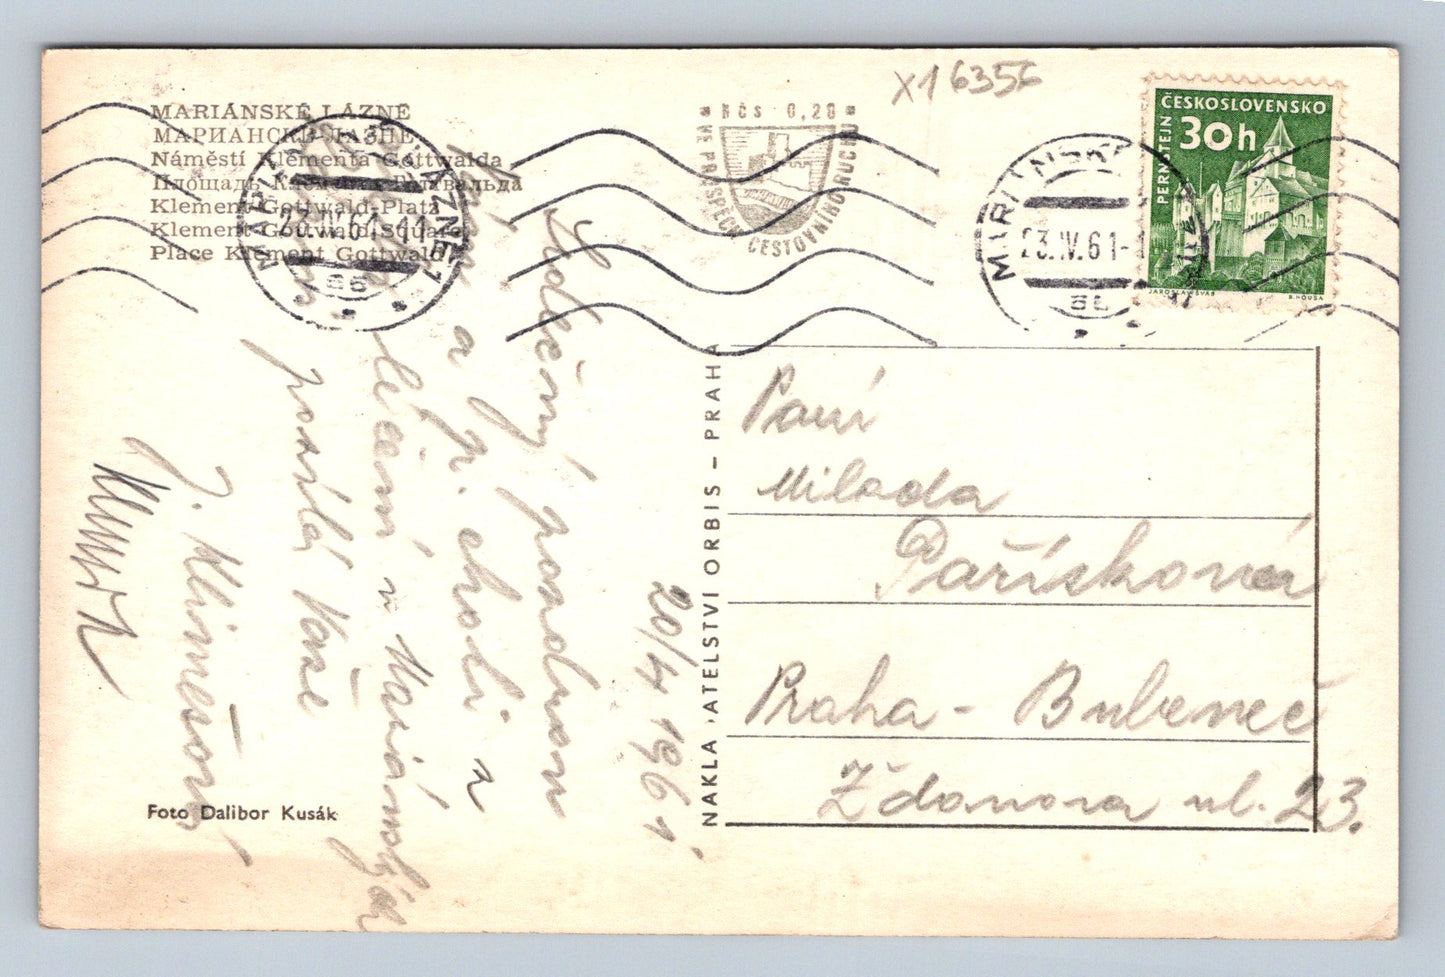 X16356
MARIÁNSKÉ LÁZNĚ
МАРИАНСКЕ ЛАЗНЕ
Náměstí Klementa Gottwalda
Площадь Клемента Готвальда
Klement Gottwald-Platz
Klement Gottwald Square
Place Klement Gottwald
MARIÁNSKÉ LÁZNĚ 1
23.IV.61-11
5b
Kčs 0,20
VE PROSPĚCH CESTOVNÍHO RUCHU
MARIÁNSKÉ
23.IV.61-1
5b
ČESKOSLOVENSKO
30h
PERNŠTEJN
JAROSLAV ŠVÁB
B. HOUSA
20/4 1961
Srdečný pozdrav
a p. choti z
léčení v Mariánských
posílá Vaše
J. Klimešová
Foto Dalibor Kusák
NAKLADATELSTVÍ ORBIS – PRAHA
Paní
Milada
Pařísková
Praha - Bubeneč
Ždanova ul. 23.